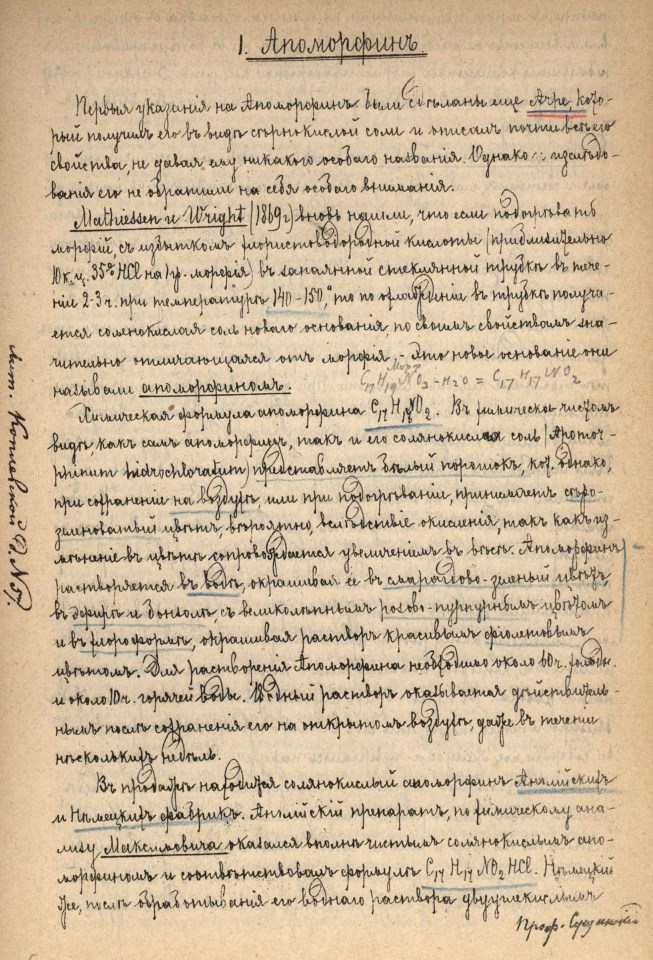 1. Апоморфинъ.
Первыя указанія на Апоморфинъ были сдѣланы еще Arpe, кото-
рый получилъ его въ видѣ сѣрнокислой соли и описалъ почти всѣ его
свойства, не давая ему никакого особаго названія. Однако изслѣдо-
ванія его не обратили на себя особаго вниманія.
Mathiessen и Wright (1869 г.) вновь нашли, что если подогрѣвать
морфій, съ избыткомъ хлористоводородной кислоты (приблизительно
10 к. ц. 35% HCl на 1 гр. морфія) въ запаянной стеклянной трубкѣ въ тече-
ніе 2-3 ч. при температурѣ 140-150,° то по охлажденіи въ трубкѣ получа-
ется солянокислая соль новаго основанія, по своимъ свойствамъ зна-
чительно отличающаяся отъ морфія. - Это новое основаніе они
назвали апоморфиномъ.
C17 H19 NO3 - H2O = C17 H17 NO2
Химическая формула апоморфина C17 H17 NO2. Въ химически чистомъ
видѣ, какъ самъ апоморфинъ, такъ и его солянокислая соль (Apomor-
phinum hidrochloratum) представляетъ бѣлый порошокъ, кот. однако,
при сохраненіи на воздухѣ, или при подогрѣваніи, принимаетъ сѣро-
зеленоватый цвѣтъ, вѣроятно, вслѣдствіе окисленія, такъ какъ из-
мѣненіе въ цвѣтѣ сопровождается увеличеніемъ въ вѣсѣ. Апоморфинъ
растворяется въ водѣ, окрашивая ее въ смарагдово-зеленый цвѣтъ,
въ эфирѣ и бензолѣ, съ великолѣпнымъ розово-пурпурнымъ цвѣтомъ
и въ хлороформѣ, окрашивая растворъ красивымъ фіолетовымъ
цвѣтомъ. Для растворенія Апоморфина необходимо около 60 ч. холодн.
и около 10 ч. горячей воды. Водный растворъ оказывается дѣйствитель-
нымъ послѣ сохраненія его на открытомъ воздухѣ, даже въ теченіи
нѣсколькихъ недѣль.
Въ продажѣ находится солянокислый апоморфинъ Англійскихъ
и Нѣмецкихъ фабрикъ. Англійскій препаратъ, по химическому ана-
лизу Максимовича оказался вполнѣ чистымъ солянокислымъ апо-
морфиномъ и соотвѣтствовалъ формулѣ C17 H17 NO2 HCl. Нѣмецкій
же, послѣ обработыванія его воднаго раствора двууглекислымъ
Проф.
лит.